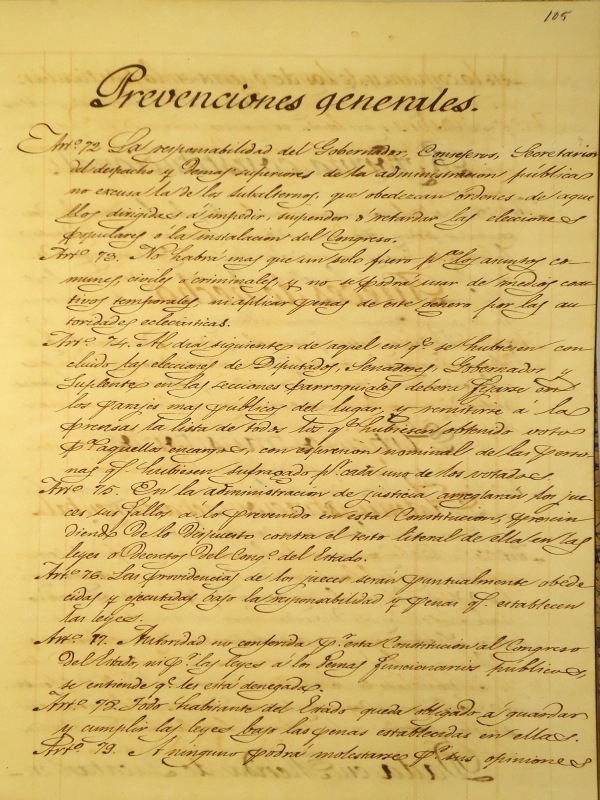 105
Prevenciones generales.
Artº 72 La responsabilidad del Gobernador, Consejeros, Secretarios
del despacho y demas superiores de la administracion publica
no excusa la de los subalternos, que obedezcan ordenes de aque
llos dirigidas a impedir, suspender o retardar las elecciones
populares o la instalacion del Congreso.
Artº 73. No habrá mas que un solo fuero pª los asuntos co
munes, civiles o criminales y no se podrá usar de medios coac
tivos temporales ni aplicar penas de este género por las au
toridades eclesiásticas.
Artº 74. Al dia siguiente de aquel en qº se hubiesen con
cluido las elecciones de Diputados, Senadores, Gobernador y
Suplente en las secciones parroquiales deberá fijarse en
los parajes mas publicos del lugar, y remitirse a la
prensa la lista de todos los qº hubiesen obtenido voto
pª aquellos encargos, con espresion nominal de las perso
nas qº hubiesen sufragado pº cada uno de los votados.
Artº 75. En la administracion de justicia arreglarán los jue
ces sus fallos a lo prevenido en esta Constitucion, prescin
diendo de lo dispuesto contra el testo literal de ella en las
leyes o decretos del Congº del Estado.
Artº 76. Las providencias de los jueces serán puntualmente obede
cidas y ejecutadas bajo la responsabilidad y penas qº establecen
las leyes.
Artº 77. Autoridad no conferida pº esta Constitucion al Congreso
del Estado, ni pº las leyes a los demas funcionarios publicos,
se entiende qº les está denegada.
Artº 78 Todo habitante del Estado queda obligado á guardar
y cumplir las leyes bajo las penas establecidas en ellas.
Artº 79. A ninguno podrá molestarse pº sus opiniones